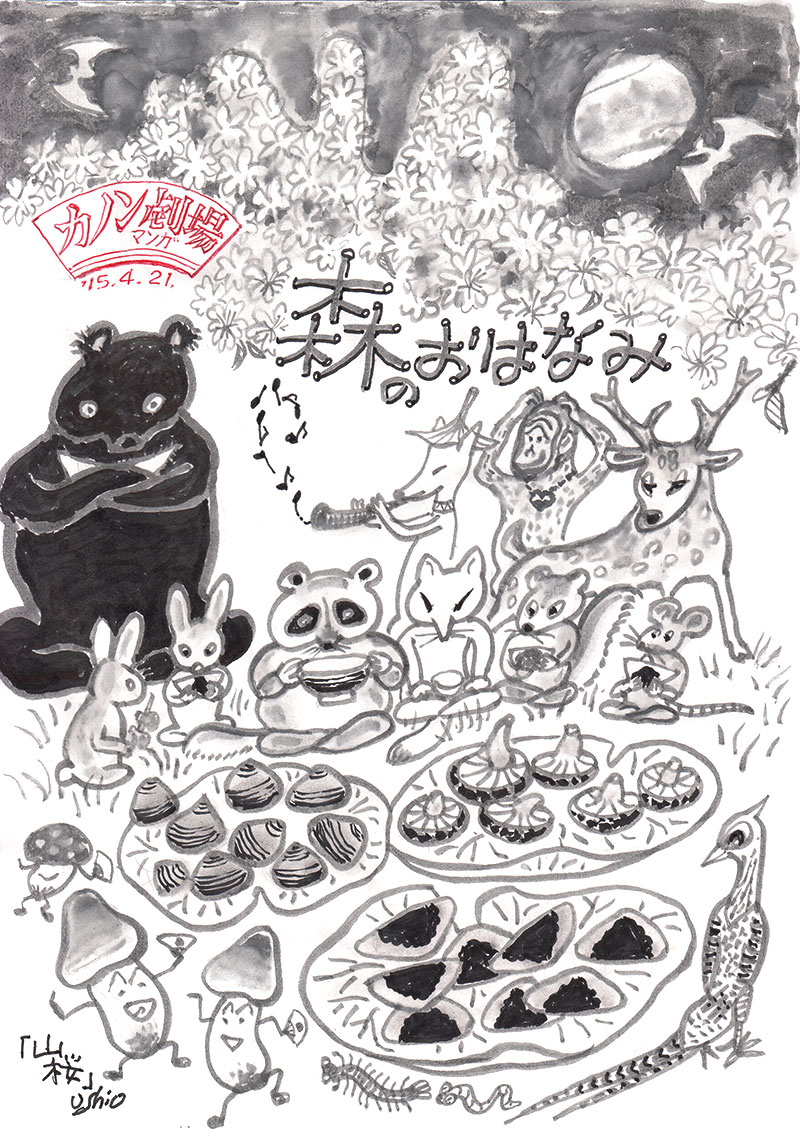 カノン劇場
マンガ
'15.4.21.
森のおはなみ
「山桜」
Ushio